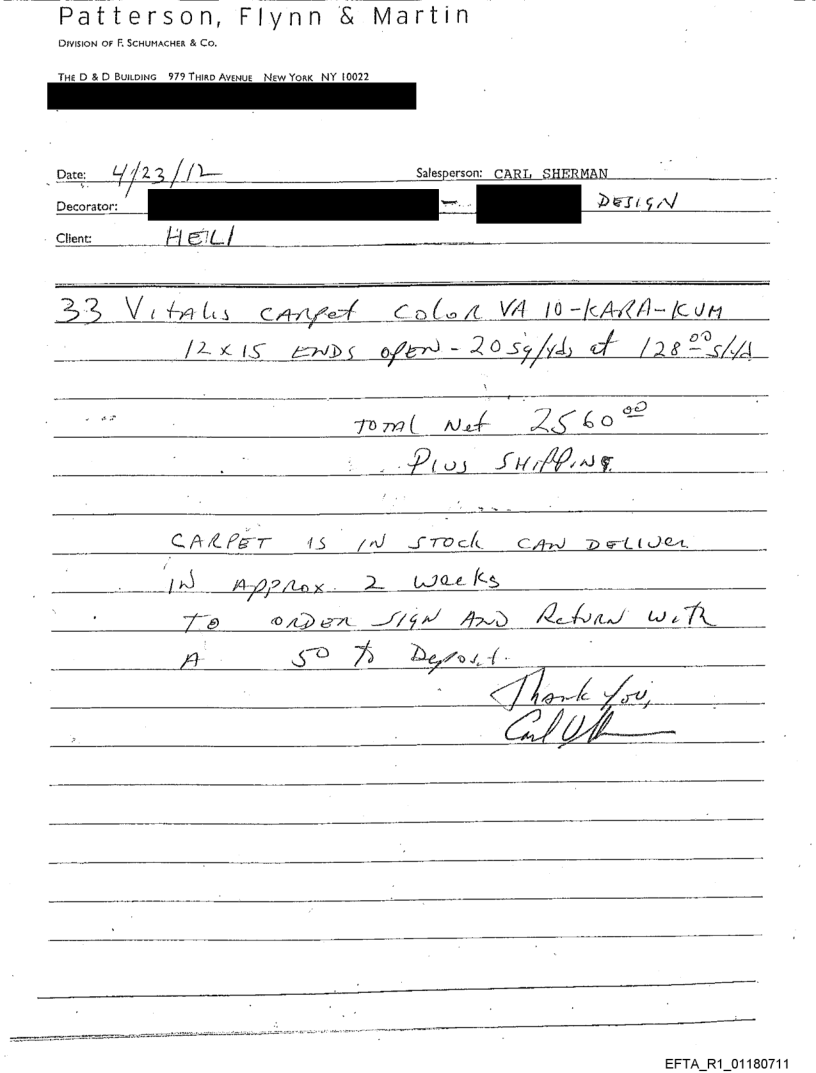 Patterson, Flynn & Martin
DIVISION OF F. SCHUMACHER & CO.
THE D & D BUILDING 979 THIRD AVENUE NEW YORK NY 10022
Date: 4/23/12 Salesperson: CARL SHERMAN
Decorator: - DESIGN
Client: HEILI
33 Vitalis CARPET COLOR VA 10-KARA-KUM
12 x 15 ENDS OPEN - 20 sq/yds at 128.00 s/yd
TOTAL Net 2560.00
Plus SHIPPING
CARPET IS IN STOCK CAN DELIVER
IN APPROX. 2 Weeks
TO ORDER SIGN AND Return With
A 50 % Deposit.
Thank You,
Carl
EFTA_R1_01180711